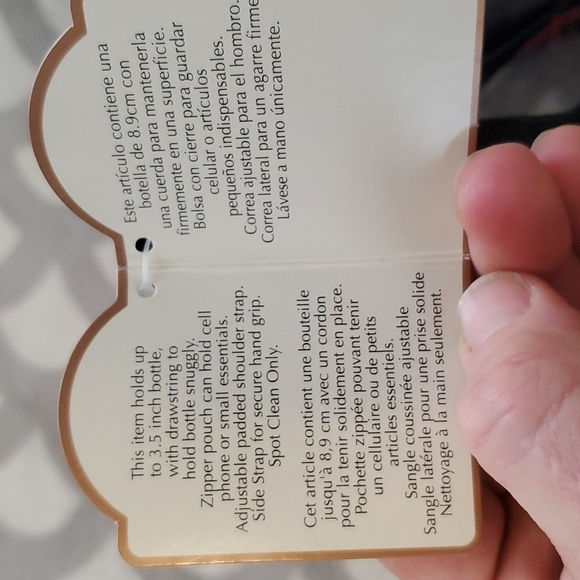 This item holds up
to 3.5 inch bottle,
with drawstring to
hold bottle snuggly.
Zipper pouch can hold cell
phone or small essentials.
Adjustable padded shoulder strap.
Side Strap for secure hand grip.
Spot Clean Only.
Cet article contient une bouteille
jusqu'à 8,9 cm avec un cordon
pour la tenir solidement en place.
Pochette zippée pouvant tenir
un cellulaire ou de petits
articles essentiels.
Sangle coussinée ajustable
Sangle latérale pour une prise solide
Nettoyage à la main seulement.
Este artículo contiene una
botella de 8.9cm con
una cuerda para mantenerla
firmemente en una superficie.
Bolsa con cierre para guardar
celular o artículos
pequeños indispensables.
Correa ajustable para el hombro.
Correa lateral para un agarre firme
Lávese a mano únicamente.